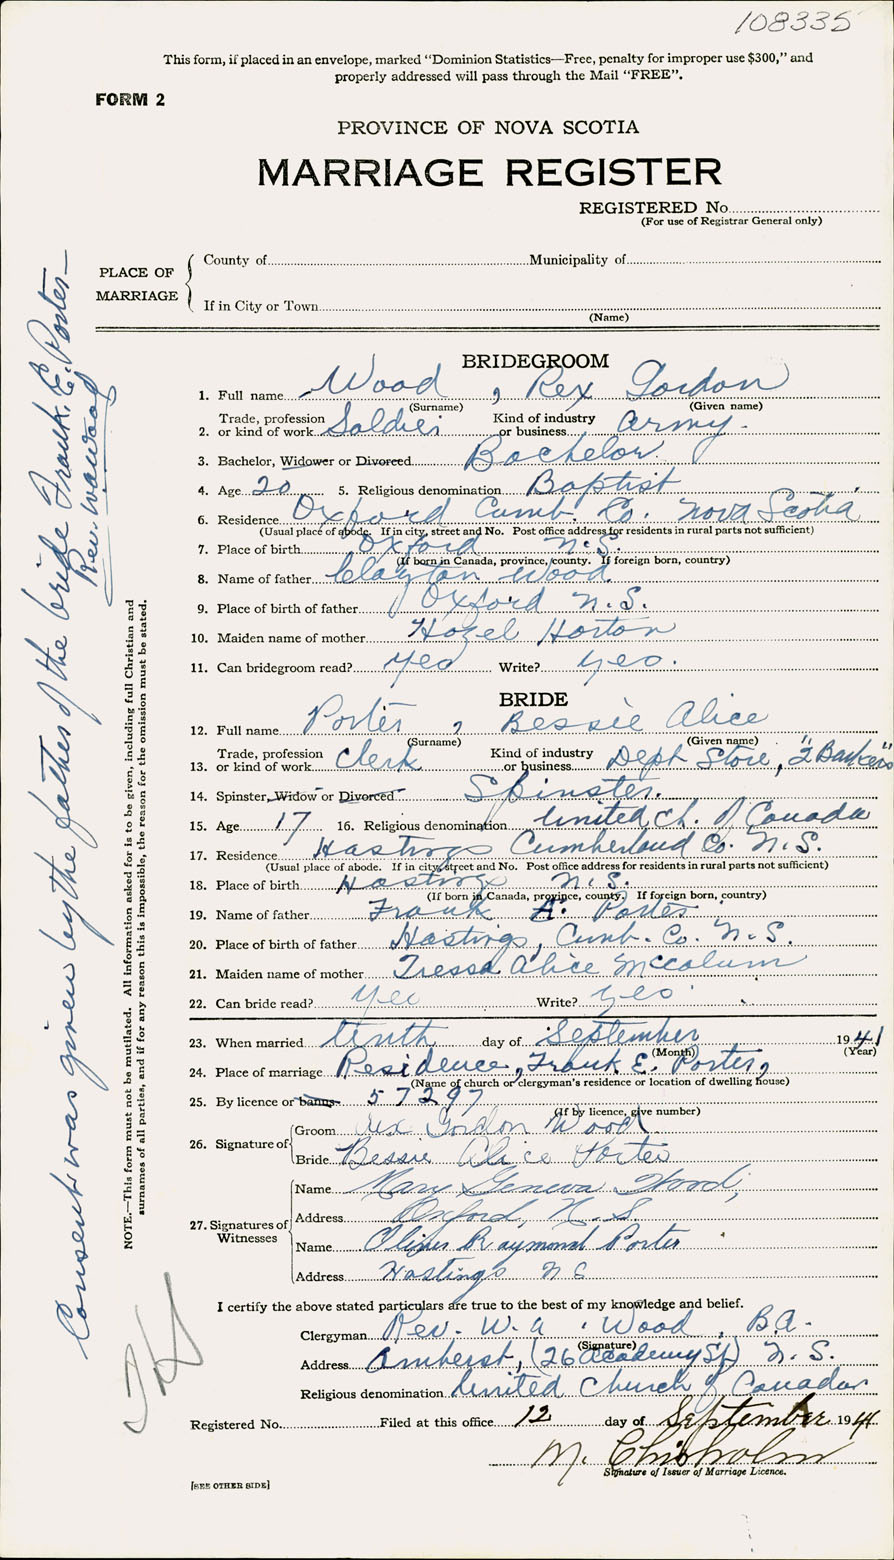 108335
This form, if placed in an envelope, marked “Dominion Statistics—Free, penalty for improper use $300,” and
properly addressed will pass through the Mail “FREE”.
FORM 2
PROVINCE OF NOVA SCOTIA
MARRIAGE REGISTER
REGISTERED No.
(For use of Registrar General only)
PLACE OF MARRIAGE
County of Municipality of
If in City or Town
(Name)
BRIDEGROOM
1. Full name Wood, Rex Gordon
(Surname) (Given name)
2. Trade, profession or kind of work Soldier Kind of industry or business Army.
3. Bachelor, Widower or Divorced Bachelor
4. Age 20 5. Religious denomination Baptist
6. Residence Oxford Cumb. Co. Nova Scotia
(Usual place of abode. If in city, street and No. Post office address for residents in rural parts not sufficient)
7. Place of birth Oxford N.S.
(If born in Canada, province, county. If foreign born, country)
8. Name of father Clayton Wood
9. Place of birth of father Oxford N.S.
10. Maiden name of mother Hazel Horton
11. Can bridegroom read? Yes Write? yes.
BRIDE
12. Full name Porter, Bessie Alice
(Surname) (Given name)
13. Trade, profession or kind of work Clerk Kind of industry or business Dept Store,
14. Spinster, Widow or Divorced Spinster.
15. Age 17 16. Religious denomination United Ch. of Canada
17. Residence Hastings Cumberland Co. N.S.
(Usual place of abode. If in city, street and No. Post office address for residents in rural parts not sufficient)
18. Place of birth Hastings N.S.
(If born in Canada, province, county. If foreign born, country)
19. Name of father Frank E. Porter
20. Place of birth of father Hastings, Cumb. Co. N.S.
21. Maiden name of mother Tressa Alice McColum
22. Can bride read? Yes Write? Yes
23. When married tenth day of September 1941
(Month) (Year)
24. Place of marriage Residence, Frank E. Porter,
(Name of church or clergyman's residence or location of dwelling house)
25. By licence or banns 57297
(If by licence, give number)
26. Signature of
Groom Rex Gordon Wood
Bride Bessie Alice Porter
27. Signatures of Witnesses
Name Mary Geneva Wood,
Address Oxford, N.S.
Name Raymond Porter
Address Hastings N S
I certify the above stated particulars are true to the best of my knowledge and belief.
Clergyman Rev. W. A. Wood, B.A.
(Signature)
Address Amherst, (26 Academy St) N.S.
Religious denomination United Church of Canada
Registered No. Filed at this office 12 day of September 1941
M. Chisholm
Signature of Issuer of Marriage Licence.
[SEE OTHER SIDE]
NOTE.—This form must not be mutilated. All information asked for is to be given, including full Christian and
surnames of all parties, and if for any reason this is impossible, the reason for the omission must be stated.
Consent was given by the father of the bride Frank. E. Porter—
Rev. W.A. Wood